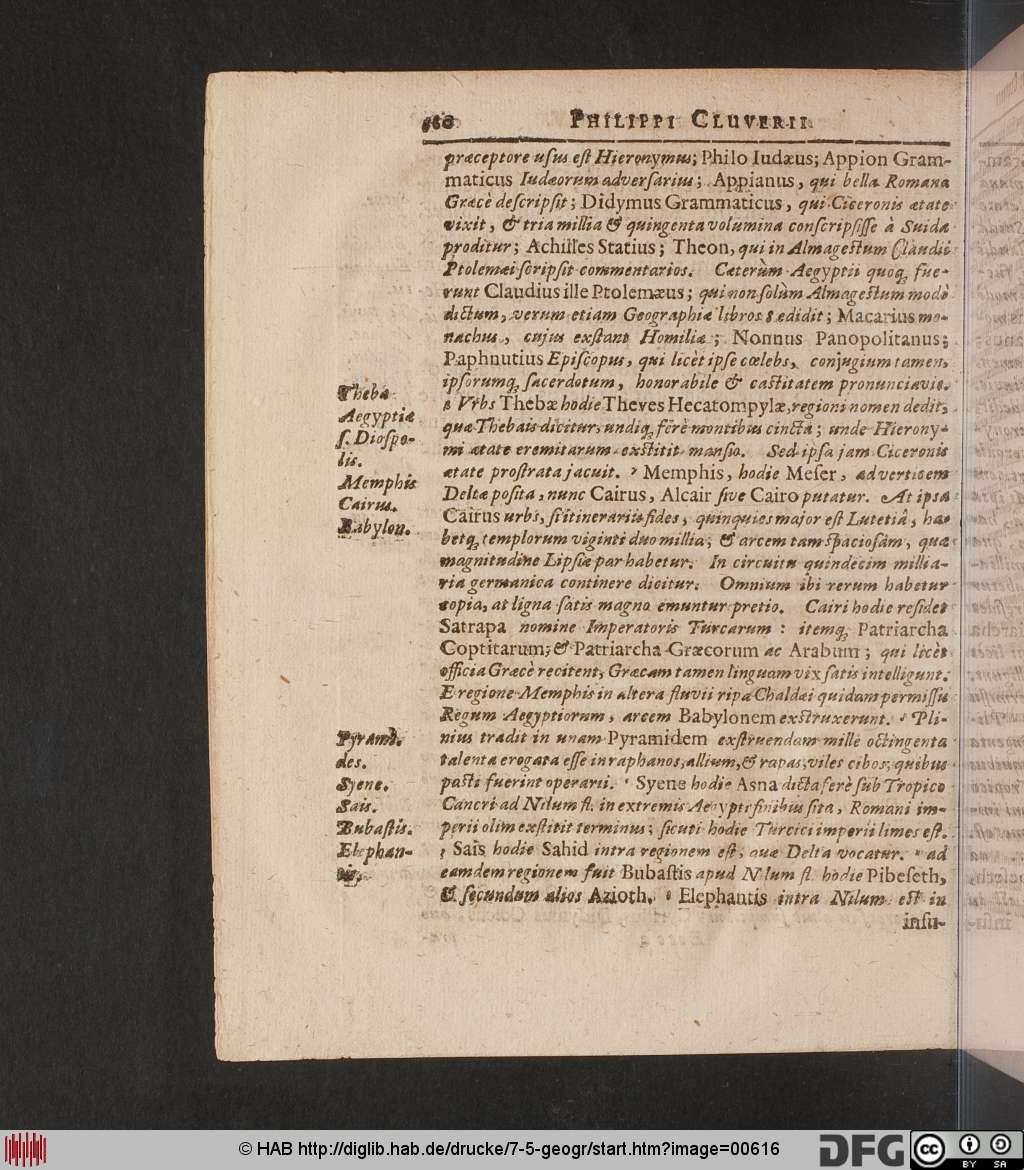 PHILIPPI CLUVERII
præceptore uſus eſt Hieronymus; Philo Iudæus; Appion Gram-
maticus Iudæorum adverſarius; Appianus, qui bella Romana
Græcè deſcripſit; Didymus Grammaticus, qui Ciceronis ætate
vixit, & tria millia & quingenta volumina conſcripſiſſe à Suida
proditur; Achilles Statius; Theon, qui in Almageſtum Claudii
Ptolemæi ſcripſit commentarios. Cæterùm Aegyptii quoq; fue-
runt Claudius ille Ptolemæus; qui non ſolùm Almageſtum modò
dictum, verum etiam Geographiæ libros 8 edidit; Macarius mo-
nachus, cujus exſtant Homiliæ; Nonnus Panopolitanus;
Paphnutius Epiſcopus, qui licèt ipſe cœlebs, conjugium tamen,
ipſorumq; ſacerdotum, honorabile & caſtitatem pronunciavit.
Vrbs Thebæ hodie Theves Hecatompylæ, regioni nomen dedit,
quæ Thebais dicitur, undiq; ferè montibus cincta; unde Hierony-
mi ætate eremitarum exſtitit manſio. Sed ipſa jam Ciceronis
ætate proſtrata jacuit. Memphis, hodie Meſer, ad verticem
Deltæ poſita, nunc Cairus, Alcair ſive Cairo putatur. At ipſa
Cairus urbs, ſi itinerariis fides, quinquies major eſt Lutetiâ, ha-
betq; templorum viginti duo millia; & arcem tam ſpacioſam, quæ
magnitudine Lipſiæ par habetur. In circuitu quindecim millia-
ria germanica continere dicitur. Omnium ibi rerum habetur
copia, at ligna ſatis magno emuntur pretio. Cairi hodie reſidet
Satrapa nomine Imperatoris Turcarum : itemq; Patriarcha
Coptitarum; & Patriarcha Græcorum ac Arabum; qui licèt
officia Græcè recitent, Græcam tamen linguam vix ſatis intelligunt.
E regione Memphis in altera fluvii ripa Chaldæi quidam permiſſu
Regum Aegyptiorum, arcem Babylonem exſtruxerunt. Pli-
nius tradit in unam Pyramidem exſtruendam mille octingenta
talenta erogata eſſe in raphanos, allium, & rapas, viles cibos, quibus
paſti fuerint operarii. Syene hodie Asna dicta ferè ſub Tropico
Cancri ad Nilum fl. in extremis Aegypti finibus ſita, Romani im-
perii olim exſtitit terminus; ſicuti hodie Turcici imperii limes eſt.
Sais hodie Sahid intra regionem eſt, quæ Delta vocatur. ad
eamdem regionem fuit Bubaſtis apud Nilum fl. hodie Pibeſeth,
& ſecundum alios Azioth. Elephantis intra Nilum eſt in
inſu-
Thebæ
Aegyptiæ
ſ. Dioſpo-
lis.
Memphis
Cairus.
Babylon.
Pyrami-
des.
Syene.
Sais.
Bubaſtis.
Elephan-
tis.
© HAB http://diglib.hab.de/drucke/7-5-geogr/start.htm?image=00616
DFG
cc
BY SA